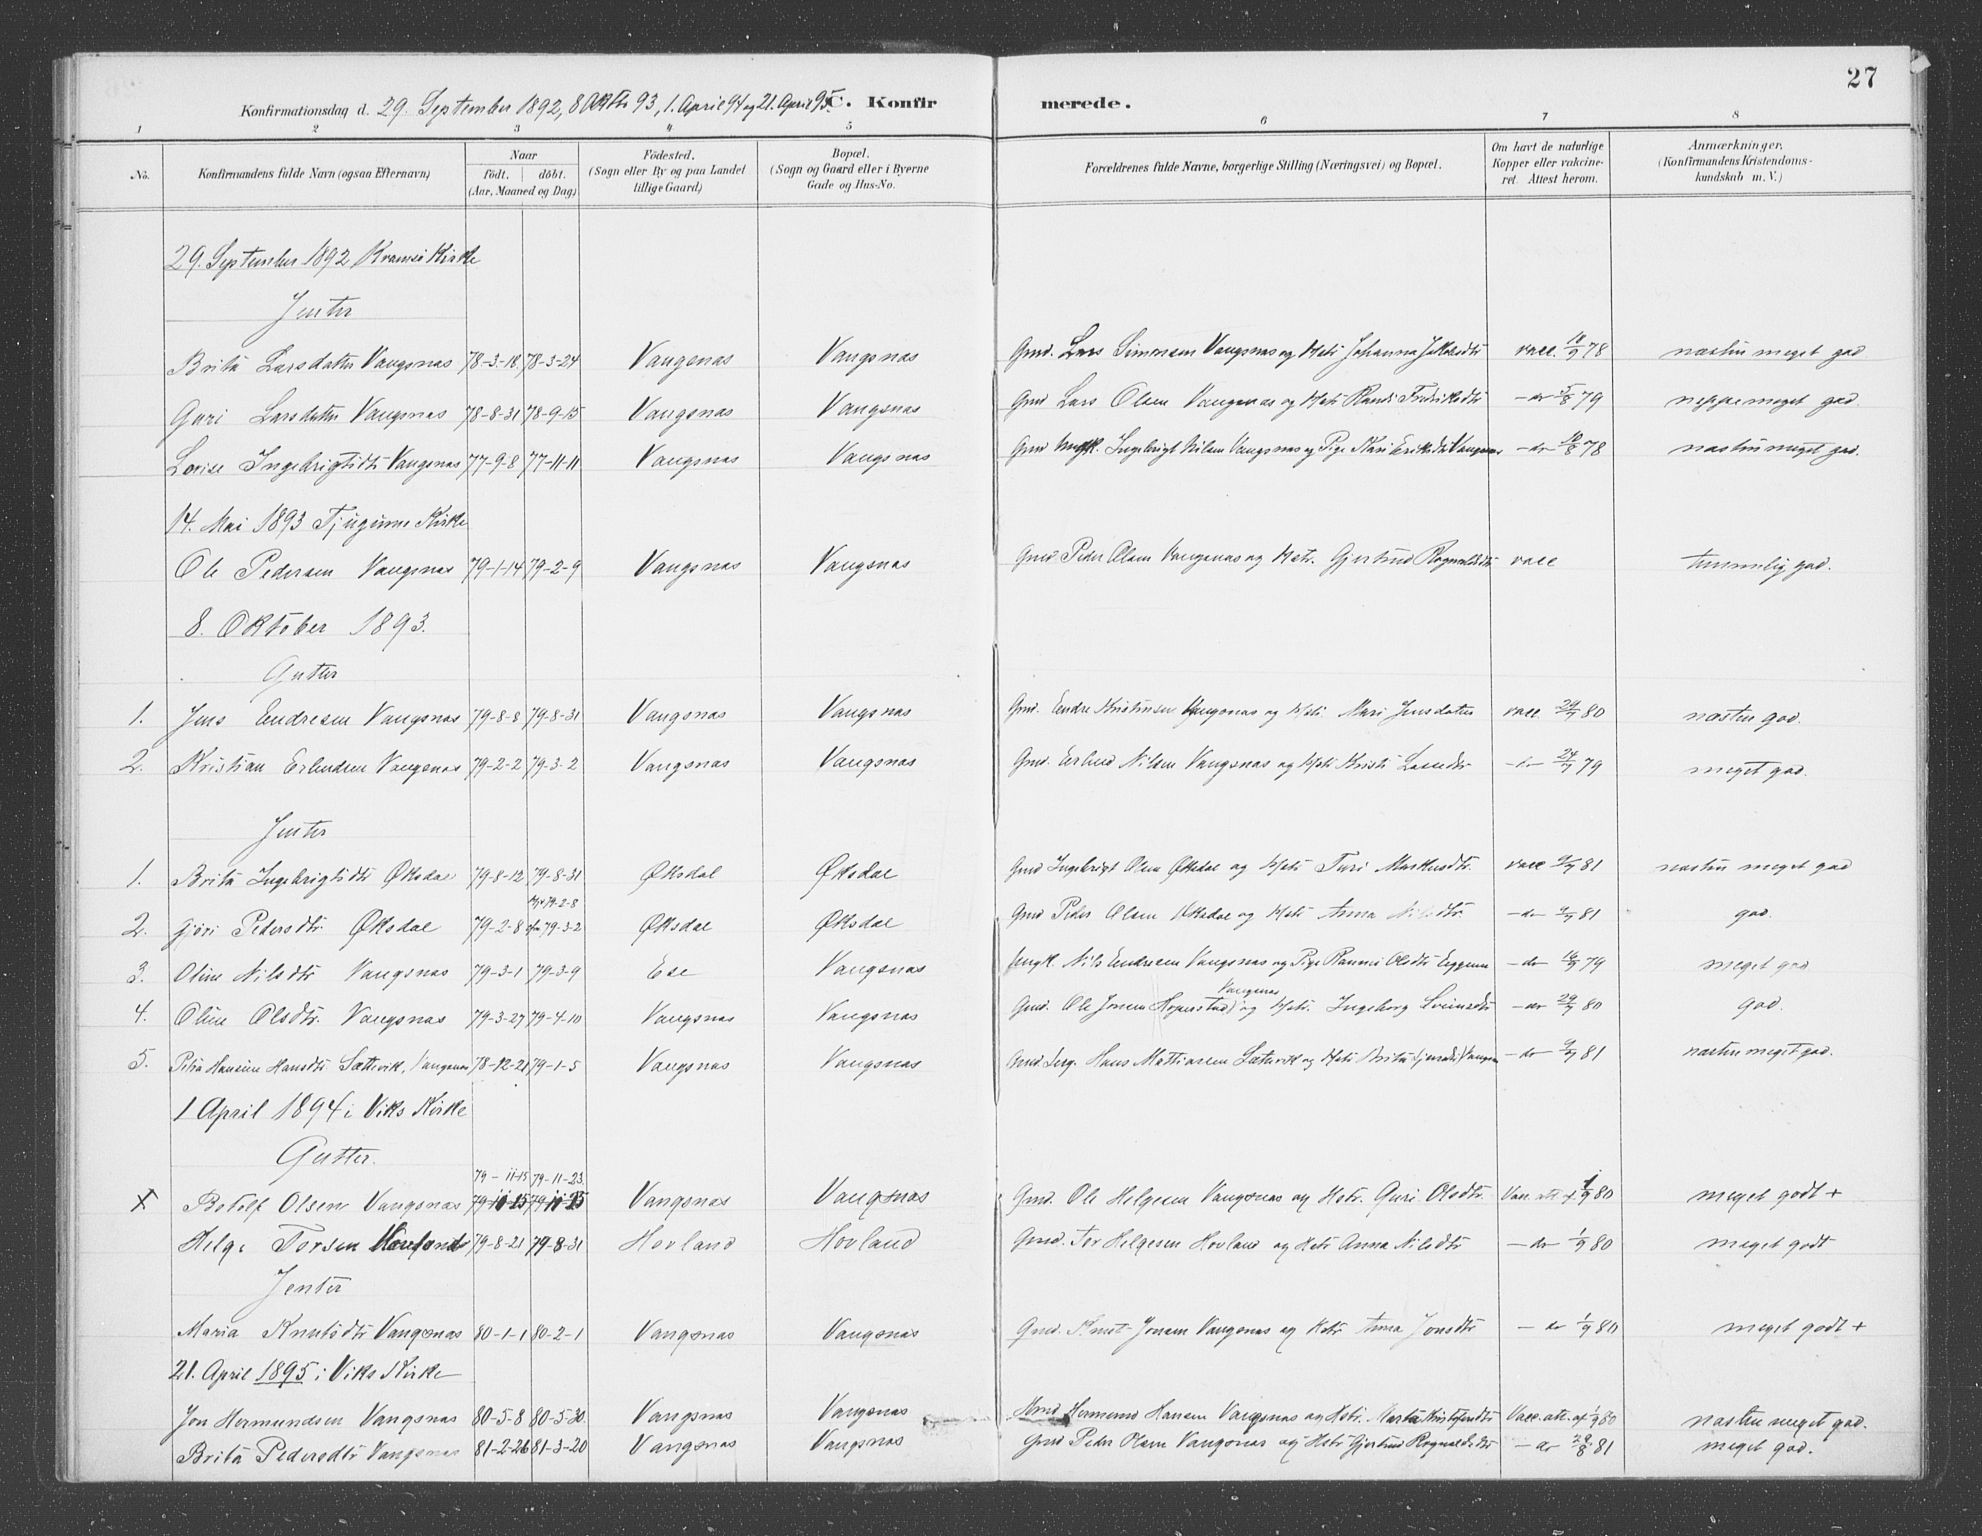 27
Konfirmationsdag d. 29. September 1892, 8 Oktbr 93, 1. April 94 og 21. April 95. C. Konfirmerede.
1 2 3 4 5 6 7 8
No. Konfirmandens fulde Navn (ogsaa Efternavn) Naar født. døbt. (Aar, Maaned og Dag) Födested. (Sogn eller By og paa Landet tillige Gaard) Bopæl. (Sogn og Gaard eller i Byerne Gade og Hus-No. Forældrenes fulde Navne, borgerlige Stilling (Næringsvei) og Bopæl. Om havt de naturlige Kopper eller vakcineret. Attest herom. Anmærkninger. (Konfirmandens Kristendomskundskab m. V.)
29. September 1892 Kirke
Jenter
Brita Larsdatter Vangsnas 78-3-18 78-3-24 Vangsnas Vangsnas Gmd. Lars Simonsen Vangsnas og Hstr Johanna vacc. 78 næsten meget god
Guri Larsdatter Vangsnas 78-8-31 78-9-15 Vangsnas Vangsnas Gmd Lars Olsen Vangsnas og Hstr Randi Fredriksdtr - do 5/8 79 neppe meget god
Lovise Ingebrigtsdtr Vangsnas 77-9-8 77-11-11 Vangsnas Vangsnas Gmd Ungk. Ingebrigt Nilsen Vangsnas og Pige Kari Eriksdtr Vangsnas - do 78 næsten meget god.
14. Mai 1893 Tjugum Kirke
Ole Pedersen Vangsnas 79-1-14 79-2-9 Vangsnas Vangsnas Gmd Peder Olsen Vangsnas og Hstr. Gjertrud Rognaldsdtr vacc temmelig god.
8. Oktober 1893.
Gutter
1. Jens Endresen Vangsnas 79-8-8 79-8-31 Vangsnas Vangsnas Gmd. Endre Kristensen Vangsnas og Hstr Mari Jensdatter vacc. 80 næsten god.
2. Kristian Erlendsen Vangsnas 79-2-2 79-3-2 Vangsnas Vangsnas Gmd. Erlend Nilsen Vangsnas og Hstr Kristi 79 meget god.
Jenter
1. Brita Ingebrigtsdtr Øksdal 79-8-12 79-8-31 Øksdal Øksdal Gmd Ingebrigt Olsen Øksdal og Hstr Turi Markusdtr. vacc 81 næsten meget god
2. Gjøri Pedersdtr. Øksdal 79-2-8 79-3-2 Øksdal Øksdal Gmd Peder Olsen Øksdal og Hstr Anna Nilsdtr. - do 81 god.
3. Oline Nilsdtr Vangsnas 79-3-1 79-3-9 Ese Vangsnas Ungk. Nils Endresen Vangsnas og Pige Olsdtr - do 79 meget god
4. Oline Olsdtr. Vangsnas 79-3-27 79-4-10 Vangsnas Vangsnas Gmd. Ole Jonsen Hoperstad Vangsnas og Hstr. Ingeborg - do 80 god.
5. Petra Hansine Hansdtr Sættevik, Vangsnas 78-12-21 79-1-5 Vangsnas Vangsnas Hans Mathiasen Sættevik og Hstr Brita Vangsn - do 81 næsten meget god.
1 April 1894 i Viks Kirke
Gutter.
79-11-15 79-11-23
X Botolf Olsen Vangsnas Vangsnas Vangsnas Gmd. Ole Helgesen Vangsnas og Hstr. Guri Olsdtr. Vac. att. af 1/9 80 meget godt +
Helge Torsen Hovland 79-8-21 79-8-31 Hovland Hovland Gmd. Tor Helgesen Hovland og Hstr Anna Nilsdtr - do 1/9 80 meget godt
Jenter
Maria Knutsdtr Vangsnas 80-1-1 80-2-1 Vangsnas Vangsnas Gmd. Knut Jonsen Vangsnas og Hstr Anna Jonsdtr - do 1/9 80 meget godt +
21. April 1895 i Viks Kirke
Jon Hermundsen Vangsnas 80-5-8 80-5-30. Vangsnas Vangsnas Gmd Hermund Hansen Vangsnas og Hstr. Marta Kristofersdtr Vacc. att. af 1/9 80 næsten meget god.
Brita Pedersdtr Vangsnas 81-2-26 81-3-20 Vangsnas Vangsnas Gmd Peder Olsen Vangsnas og Hstr Gjertrud Rognaldsdtr - do 29/8 81 meget god.